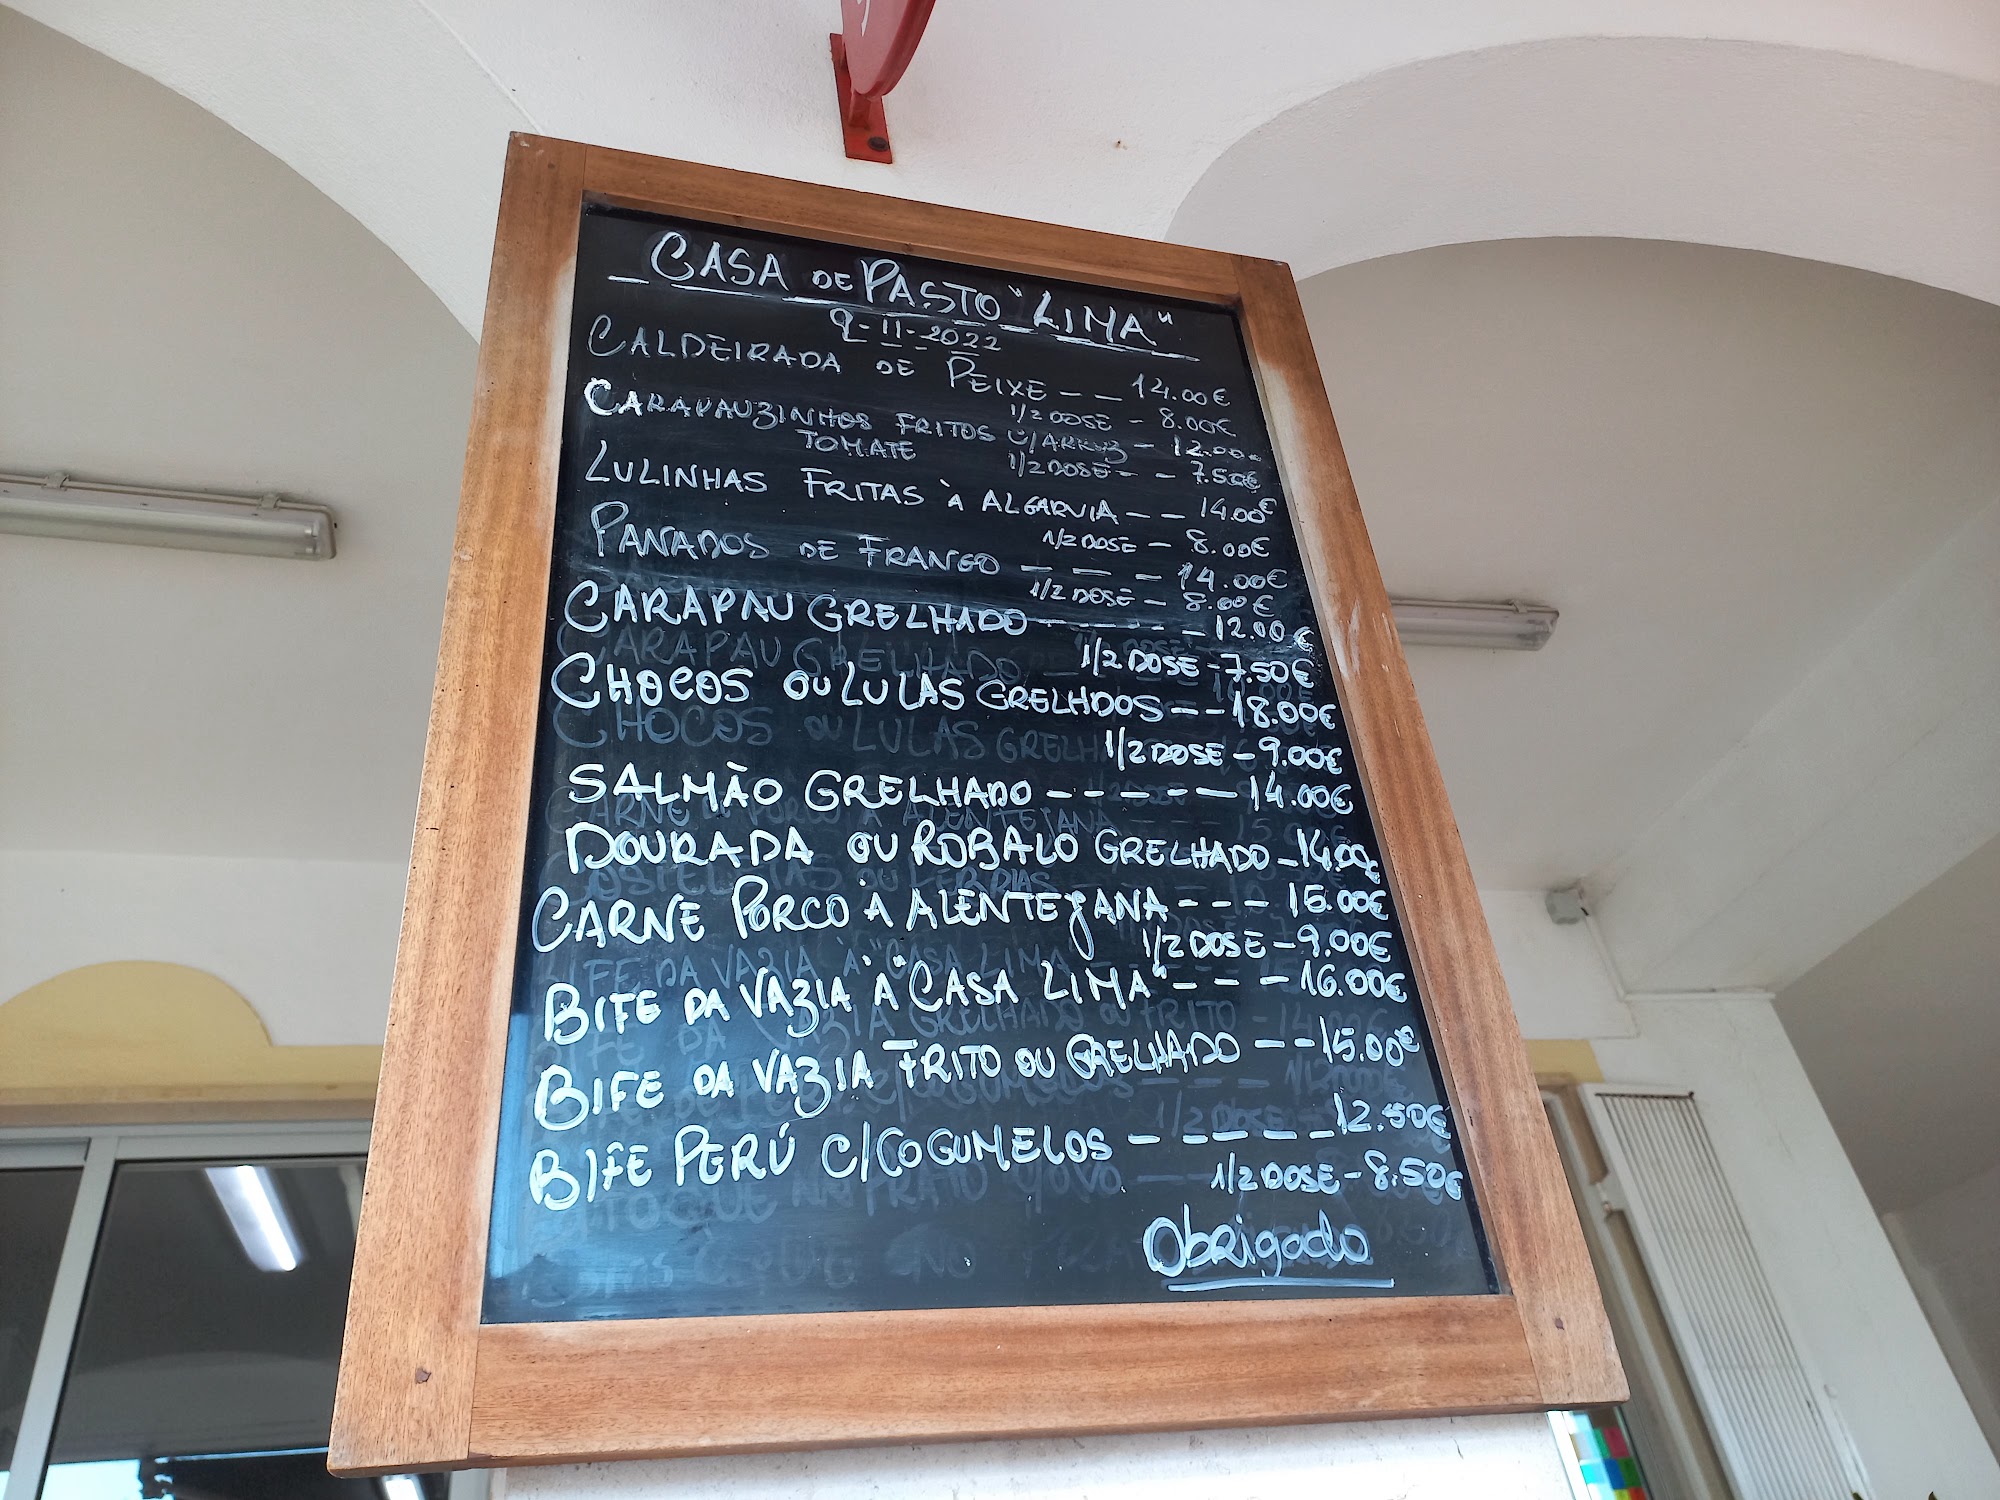 CASA DE PASTO "LIMA"
9-11-2022
CALDEIRADA DE PEIXE -- 14.00€
1/2 DOSE - 8.00€
CARAPAUZINHOS FRITOS C/ARROZ - 12.00€
TOMATE 1/2 DOSE -- 7.50€
LULINHAS FRITAS À ALGARVIA -- 14.00€
1/2 DOSE - 8.00€
PANADOS DE FRANGO --- 14.00€
1/2 DOSE - 8.00€
CARAPAU GRELHADO ----- 12.00€
1/2 DOSE - 7.50€
CHOCOS OU LULAS GRELHDOS -- 18.00€
1/2 DOSE - 9.00€
SALMÃO GRELHADO ----- 14.00€
DOURADA OU ROBALO GRELHADO - 14.00€
CARNE PORCO À ALENTEJANA --- 15.00€
1/2 DOSE - 9.00€
BIFE DA VAZIA À "CASA LIMA" --- 16.00€
BIFE DA VAZIA FRITO OU GRELHADO -- 15.00€
BIFE PERÚ C/COGUMELOS ----- 12.50€
1/2 DOSE - 8.50€
Obrigado